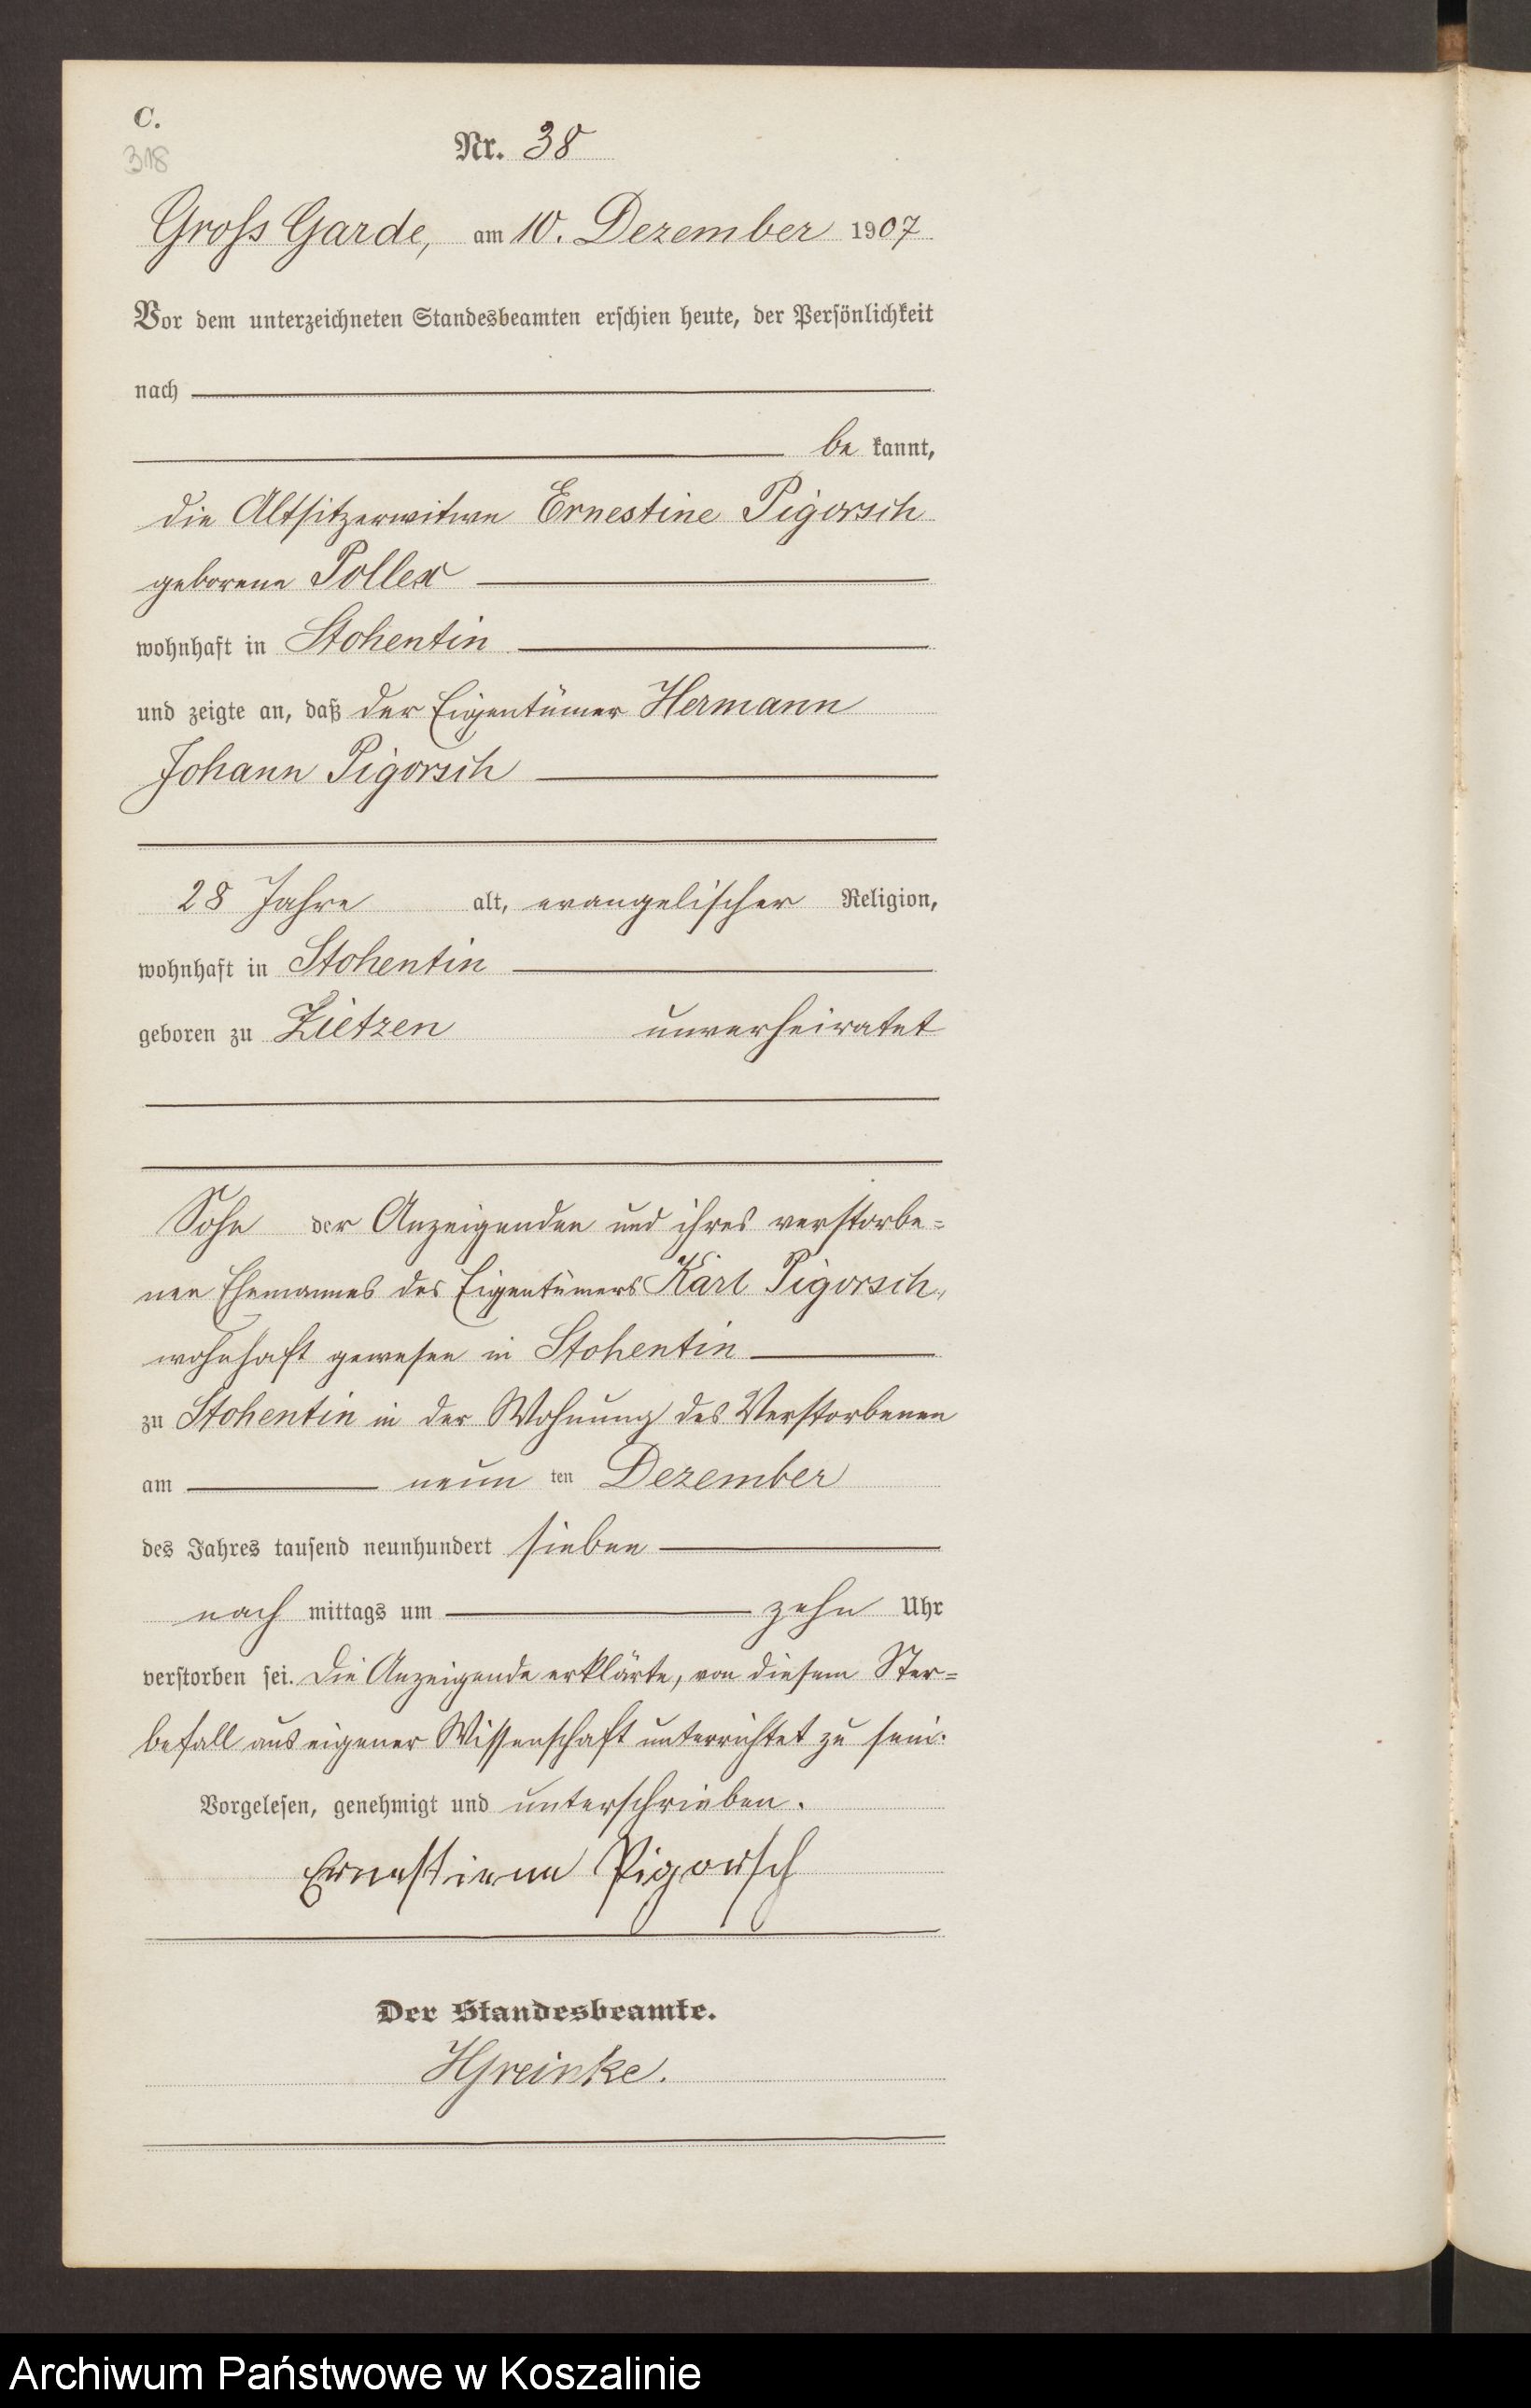 C.
318
Nr. 38
Gross Garde, am 10. Dezember 1907
Vor dem unterzeichneten Standesbeamten erschien heute, der Persönlichkeit
nach
be kannt,
die Altsitzerwitwe Ernestine Pigorsch
geborene Pollex
wohnhaft in Stohentin
und zeigte an, daß der Eigentümer Hermann
Johann Pigorsch
28 Jahre alt, evangelischer Religion,
wohnhaft in Stohentin
geboren zu Zietzen unverheiratet
Sohn der Anzeigenden und ihres verstorbe=
nen Ehemannes des Eigentümers Karl Pigorsch,
wohnhaft gewesen in Stohentin
zu Stohentin in der Wohnung des Verstorbenen
am neun ten Dezember
des Jahres tausend neunhundert sieben
nach mittags um zehn Uhr
verstorben sei. Die Anzeigende erklärte, von diesem Ster=
befall aus eigener Wissenschaft unterrichtet zu sein.
Vorgelesen, genehmigt und unterschrieben.
Ernestiene Pigorsch
Der Standesbeamte.
HGreinke.
Archiwum Państwowe w Koszalinie